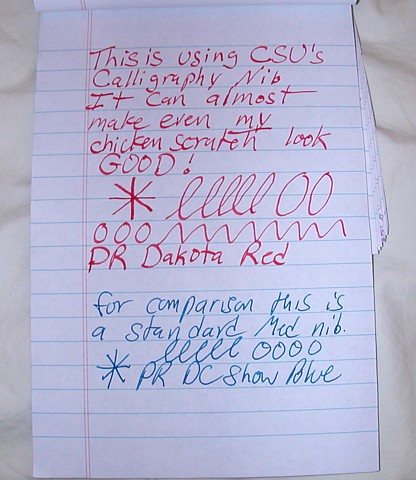 This is using CSU's
Calligraphy Nib
It Can almost
make even my
chicken scratch look
GOOD!
* lllll OO
OOO
PR Dakota Red
for comparison this is
a standard Med nib.
lllll OOOO
* PR DC Show Blue